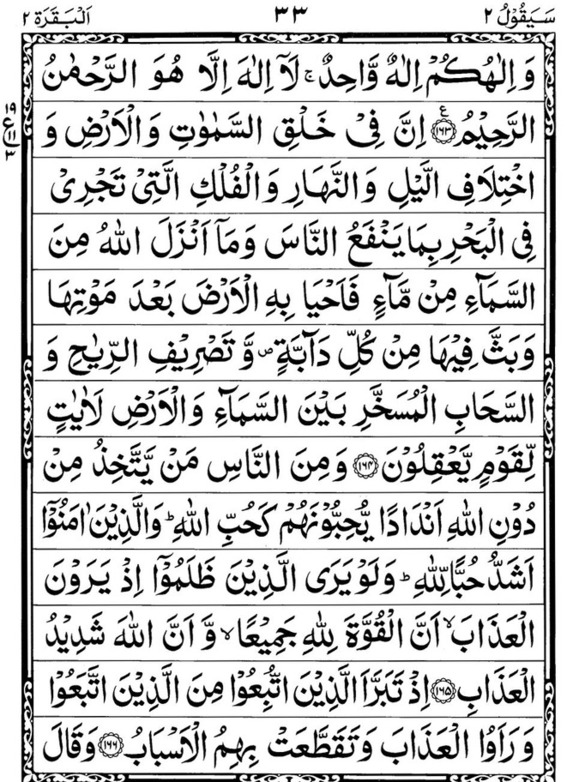 سَيَقُوْلُ ٢ ٣٣ اَلْبَقَرَة ٢
وَ اِلٰهُكُمْ اِلٰهٌ وَّاحِدٌ ۚ لَاۤ اِلٰهَ اِلَّا هُوَ الرَّحْمٰنُ
الرَّحِيْمُ ﴿١٦٣﴾ ع اِنَّ فِيْ خَلْقِ السَّمٰوٰتِ وَ الْاَرْضِ وَ
١٩ ع ١١ ٣
اخْتِلَافِ الَّيْلِ وَ النَّهَارِ وَ الْفُلْكِ الَّتِيْ تَجْرِيْ
فِي الْبَحْرِ بِمَا يَنْفَعُ النَّاسَ وَ مَاۤ اَنْزَلَ اللّٰهُ مِنَ
السَّمَآءِ مِنْ مَّآءٍ فَاَحْيَا بِهِ الْاَرْضَ بَعْدَ مَوْتِهَا
وَ بَثَّ فِيْهَا مِنْ كُلِّ دَآبَّةٍ ۪ وَّ تَصْرِيْفِ الرِّيٰحِ وَ
السَّحَابِ الْمُسَخَّرِ بَيْنَ السَّمَآءِ وَ الْاَرْضِ لَاٰيٰتٍ
لِّقَوْمٍ يَّعْقِلُوْنَ ﴿١٦٤﴾ وَ مِنَ النَّاسِ مَنْ يَّتَّخِذُ مِنْ
دُوْنِ اللّٰهِ اَنْدَادًا يُّحِبُّوْنَهُمْ كَحُبِّ اللّٰهِ ؕ وَ الَّذِيْنَ اٰمَنُوْۤا
اَشَدُّ حُبًّا لِّلّٰهِ ؕ وَ لَوْ يَرَى الَّذِيْنَ ظَلَمُوْۤا اِذْ يَرَوْنَ
الْعَذَابَ ۙ اَنَّ الْقُوَّةَ لِلّٰهِ جَمِيْعًا ۙ وَّ اَنَّ اللّٰهَ شَدِيْدُ
الْعَذَابِ ﴿١٦٥﴾ اِذْ تَبَرَّاَ الَّذِيْنَ اتُّبِعُوْا مِنَ الَّذِيْنَ اتَّبَعُوْا
وَ رَاَوُا الْعَذَابَ وَ تَقَطَّعَتْ بِهِمُ الْاَسْبَابُ ﴿١٦٦﴾ وَ قَالَ